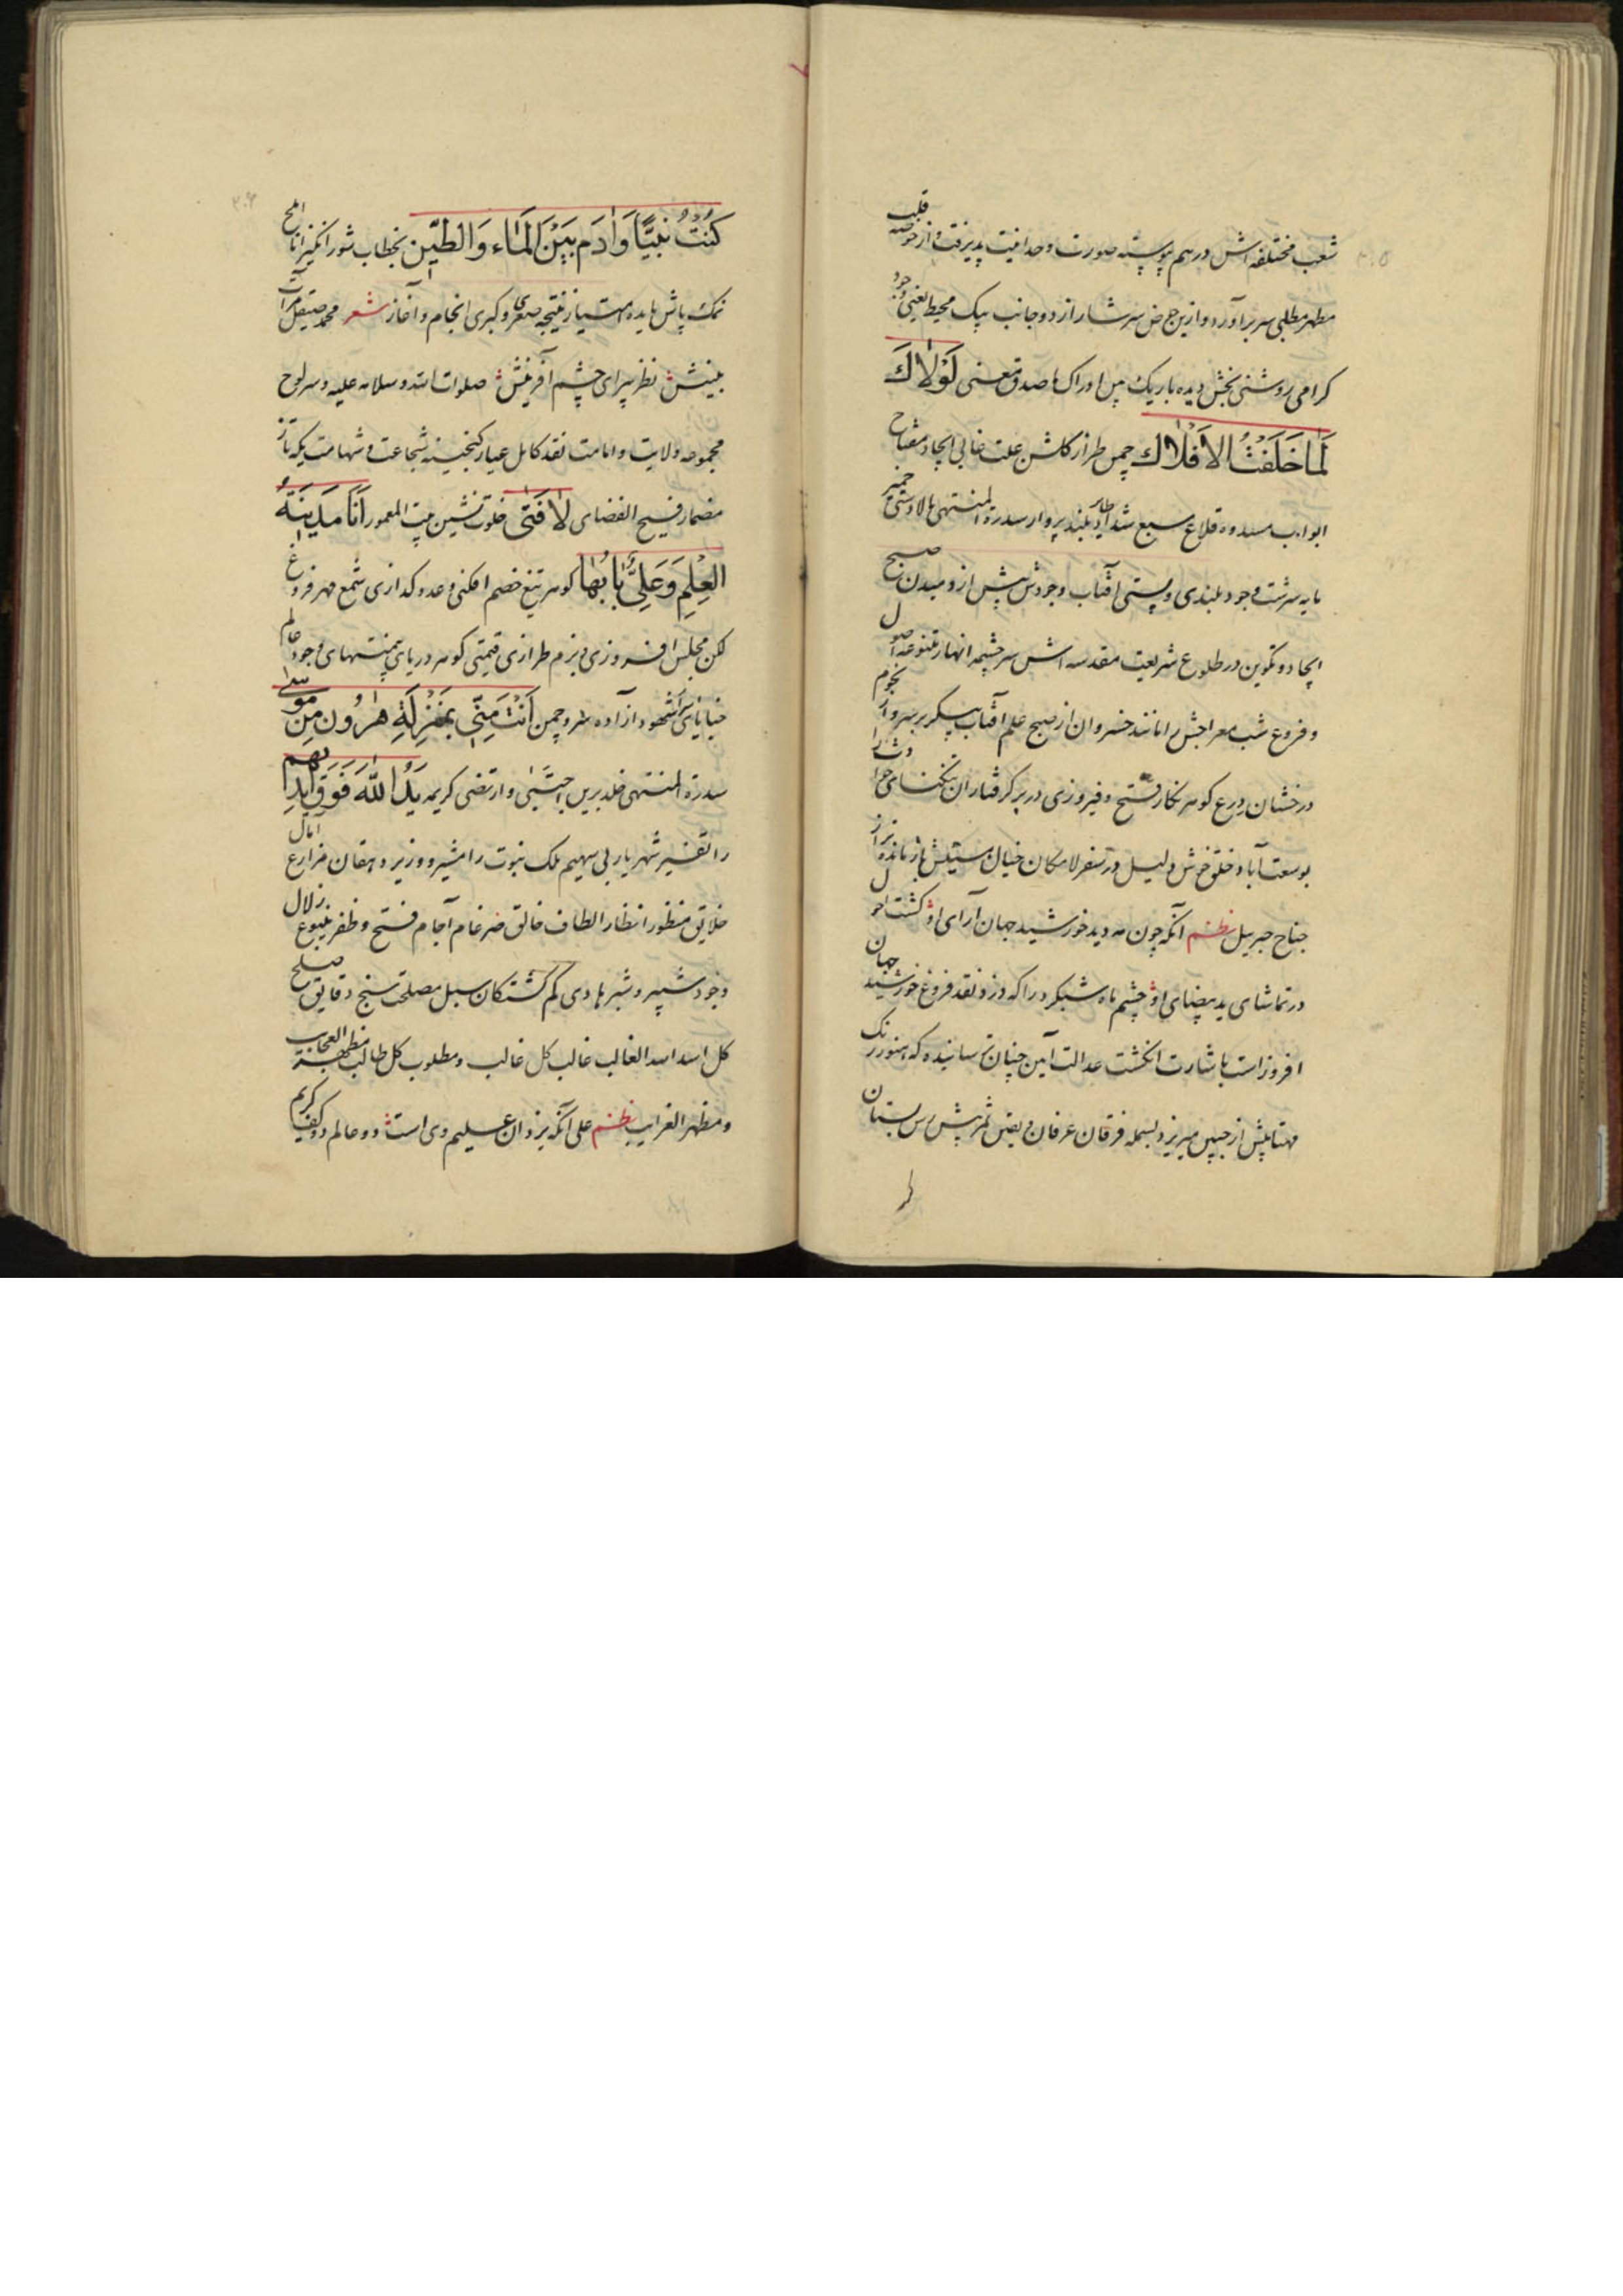 شعب مختلفه اش در هم پیوسته صورت وحدانیت پذیرفت و از حوصه قلب
مطهر مطلبی سر برآورد و ازین حوض سرشار از دو جانب بیک محیط یعنی وجود
کرامی روشنی بخش دیده باریک بین ادراک ما صدق معنی لَوْلَاكَ
لَمَا خَلَقْتُ الاَفْلَاك چمن طراز کلشن علت غائی ایجاد مفتاح
ابواب مسدوده قلاع سبع شداد طایر بلند پرواز سدرة المنتهی بالادستی خمیر
مایه سرشت وجود بلندی و پستی آفتاب وجودش پیش از دمیدن صبح
ایجاد و تکوین در طلوع شریعت مقدسه اش سرچشمه انهار متنوعه اصول
و فروع شب معراجش را مانند خسروان از صبح علم آفتاب پیکر بر سر و از نجوم
درخشان درع کوهر نکار فتح و فیروزی در بر کرفتاران تنکنای حوادث را
بوسعت آباد خلق خوش دلیل در سفر لامکان خیال سبکش باز مانده تر از
جناح جبریل نظم آنکه چون مه دید خورشید جهان آرای او کشت احول
در تماشای ید بیضای او چشم ماه شبکرد را که دزد نقد فروغ خورشید جهان
افروز است باشارت انکشت عدالت آیین چنان ترسانیده که هنوز رنک
مهتابیش از جبین میریزد بسمله فرقان عرفان و یقین ثمر پیش رس بستان
كُنْتُ نَبِيًّا وَآدَم بَيْنَ الْمَاء وَالطِّين بخطاب شور انکیز انا املح
نمک پاش مایده امتیاز نتیجه صغری و کبری انجام و آغاز شعر محمد صیقل مرآت
بینش نظر پیرای چشم آفرینش صلوات الله و سلامه علیه و سر لوح
مجموعه ولایت و امامت نقد کامل عیار کنجینه شجاعت و شهامت یکه تاز
مضمار فسیح الفضای لَا فَتَى خلوت نشین بیت المعمور اَنَا مَدِينَةُ
الْعِلْمِ وَعَلِيٌّ بَابُهَا کوهر تیغ خصم افکنی و عدو کدازی شمع مهر فروغ
لکن مجلس افروزی و بزم طرازی قیمتی کوهر دریای بی منتهای وجود عالم
شهود آزاده سرو چمن اَنْتَ مِنِّي بِمَنْزِلَةِ هٰرُون مِنْ مُوسٰى
سدرة المنتهی خلد برین اجتبی و ارتضی کریمه يَدُ اللّٰهِ فَوْقَ اَيْدِيهِمْ
را تفسیر شهریار بی سهیم ملک نبوت را مشیر و وزیر دهقان مزارع آمال
خلایق منظور انظار الطاف خالق ضرغام آجام فتح و ظفر ینبوع زلال
وجود شبیر و شبر هادی کم کشتکان سبل مصلحت سنج دقایق صلح
کل اسد الله الغالب غالب کل غالب و مطلوب کل طالب مظهر العجایب
و مظهر الغرایب نظم علی آنکه یزدان علیم وی است دو عالم دو کف کریم